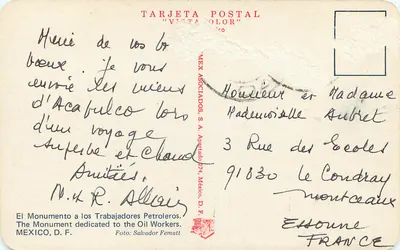 TARJETA POSTAL
"VISTACOLOR"
Merci de vos bons
vœux. Je vous
envoie les miens
d'Acapulco lors
d'un voyage
superbe et chaud
Amitiés,
M. & R.
El Monumento a los Trabajadores Petroleros.
The Monument dedicated to the Oil Workers.
MEXICO, D. F. Foto: Salvador Fematt
MEX ASOCIADOS, S. A. México, D. F.
Monsieur et Madame
Mademoiselle Aubret
3 Rue des Ecoles
91830 le Coudray
montceaux
Essonne
FRANCE